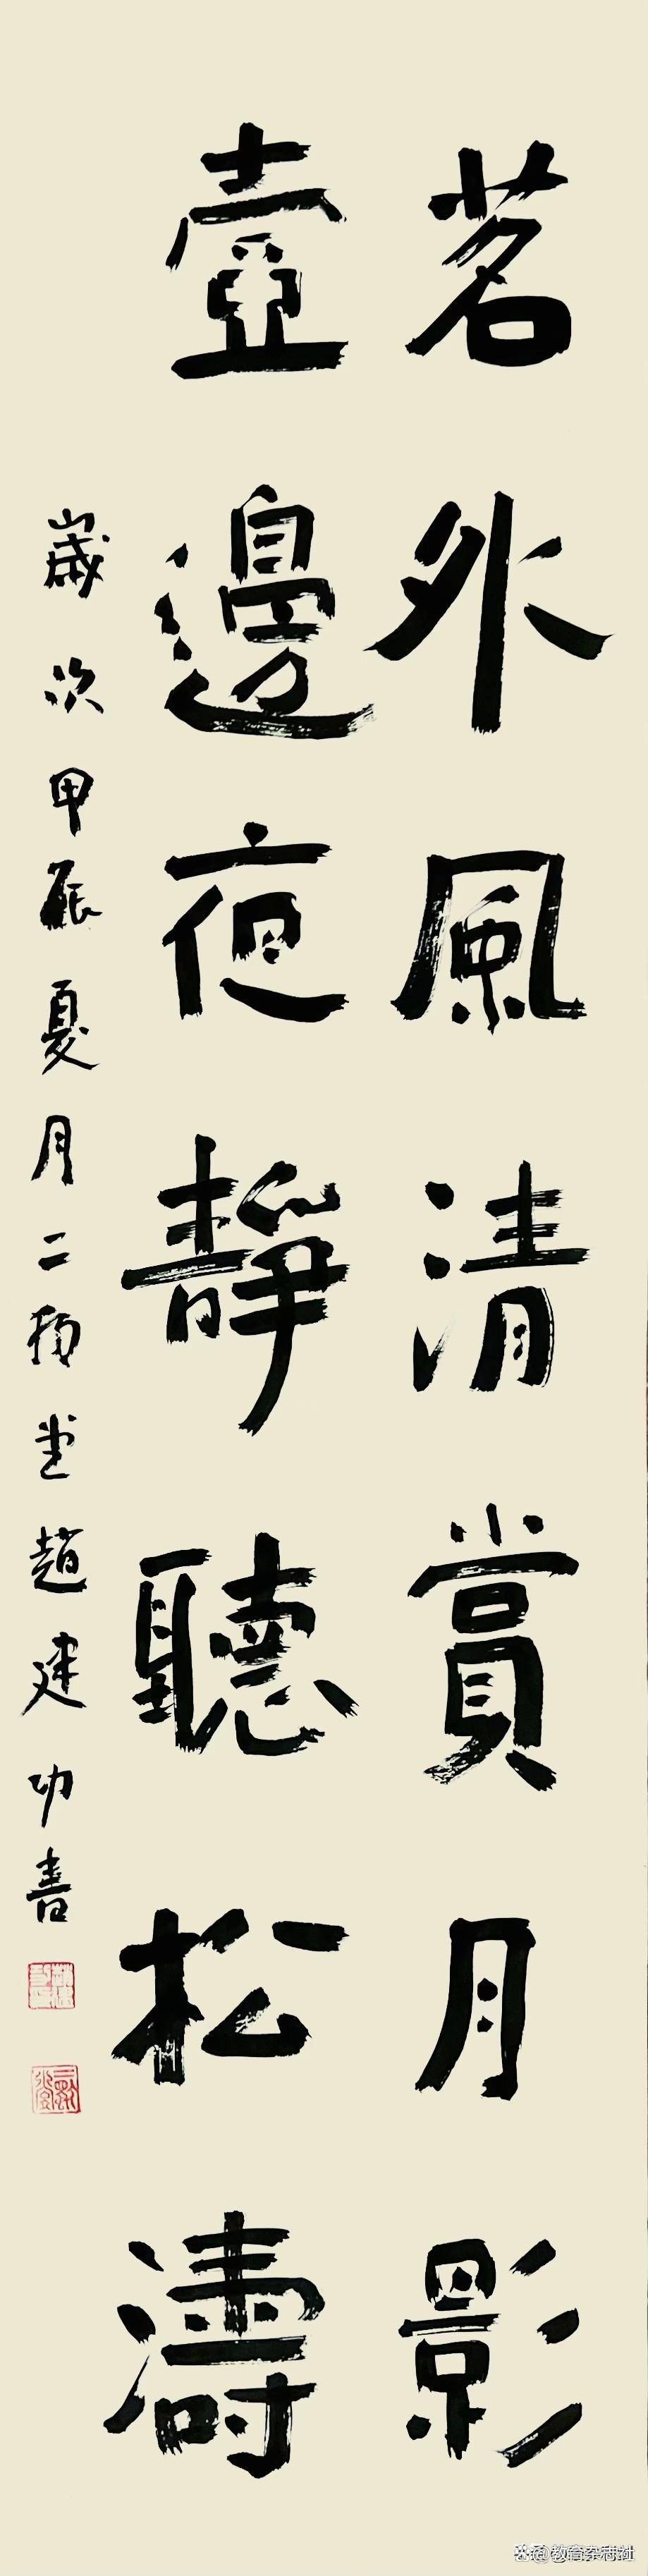 茗外風清賞月影
壺邊夜靜聽松濤
歲次甲辰夏月二稱堂趙建功書
@教育杂志社